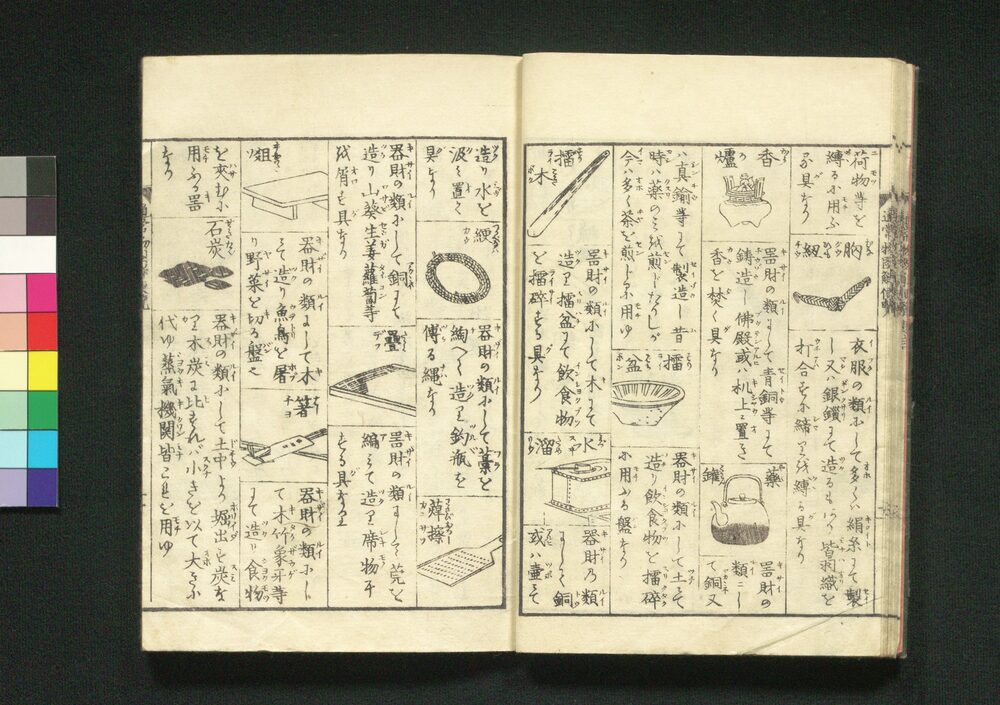 荷物等を
縛るに用ふ
る具なり
胸
紐
衣服の類にして多くハ絹糸にて製
し又ハ銀鎖にて造るもあり皆羽織を
打合せに締りを縛る具なり
香
爐
器財の類にして青銅等にて
鋳造し佛殿或ハ机上に置き
香を焚く具なり
藥
鑵
器財の
類にし
て銅又
ハ真鍮等にて製造し昔
時ハ藥のミを煎じたりしが
今ハ多く茶を煎じるに用ゆ
擂
木
器財の類にして木にて
造り擂盆にて飲食物
を擂碎する具なり
擂
盆
器財の類にして土にて
造り飲食物を擂碎
に用ふる盤なり
水
溜
器財乃類
にして銅
或ハ壷にて
造り水を
汲ミ置く
具なり
綆
器財の類にして藁を
綯ヘて造り釣瓶を
傳る縄なり
薄擦
器財の類にして銅にて
造り山葵生姜蘿蔔等
を屑す具なり
疊
器財の類にして莞を
編ミて造り席物
する具なり
俎
器財の類にして木
にて造り魚鳥を屠
り野菜を切る盤なり
箸
器財の類にし
て木竹象牙等
にて造り食物
を夾むに
用ふる器
なり
石炭
器財の類にして土中より堀出す炭な
り木炭に比すれバ小きを以て大きに
代ゆ蒸氣機関皆これを用ゆ